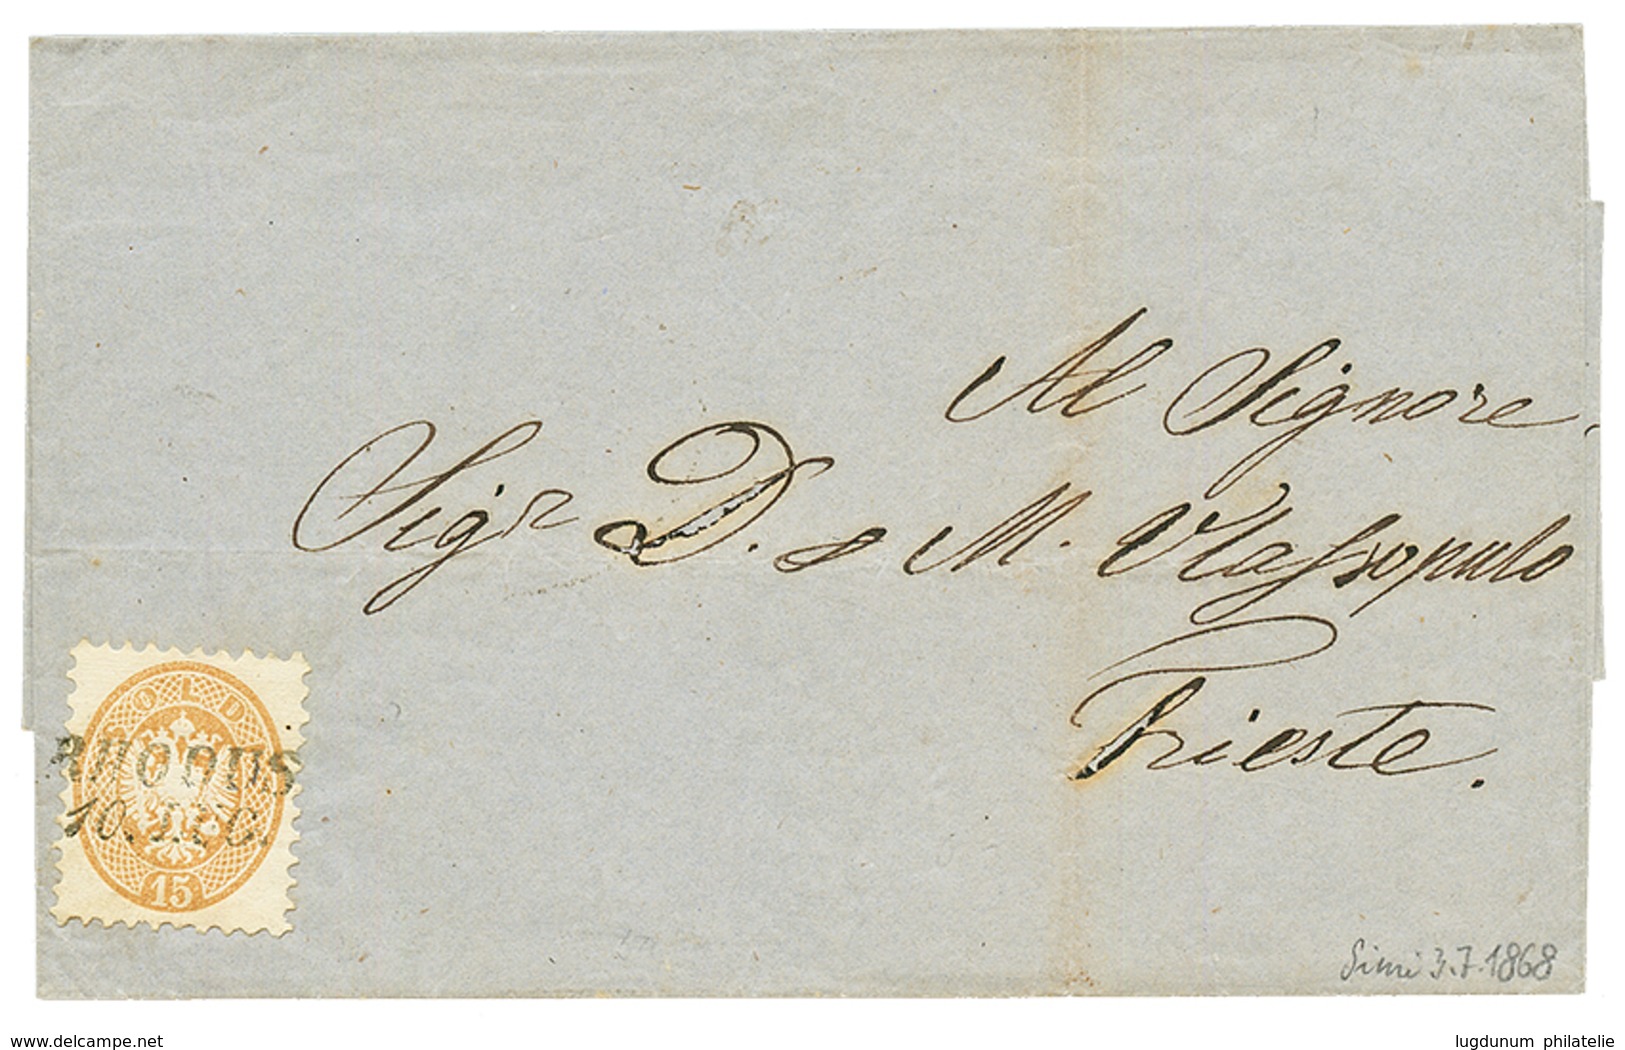 Al Signore.
Sigr D. & M. Vlassopulo
Trieste.
SOLDI
RHODUS
10. DEC.
15
Simi 3.7.1868
www.delcampe.net
lugdunum philatelie